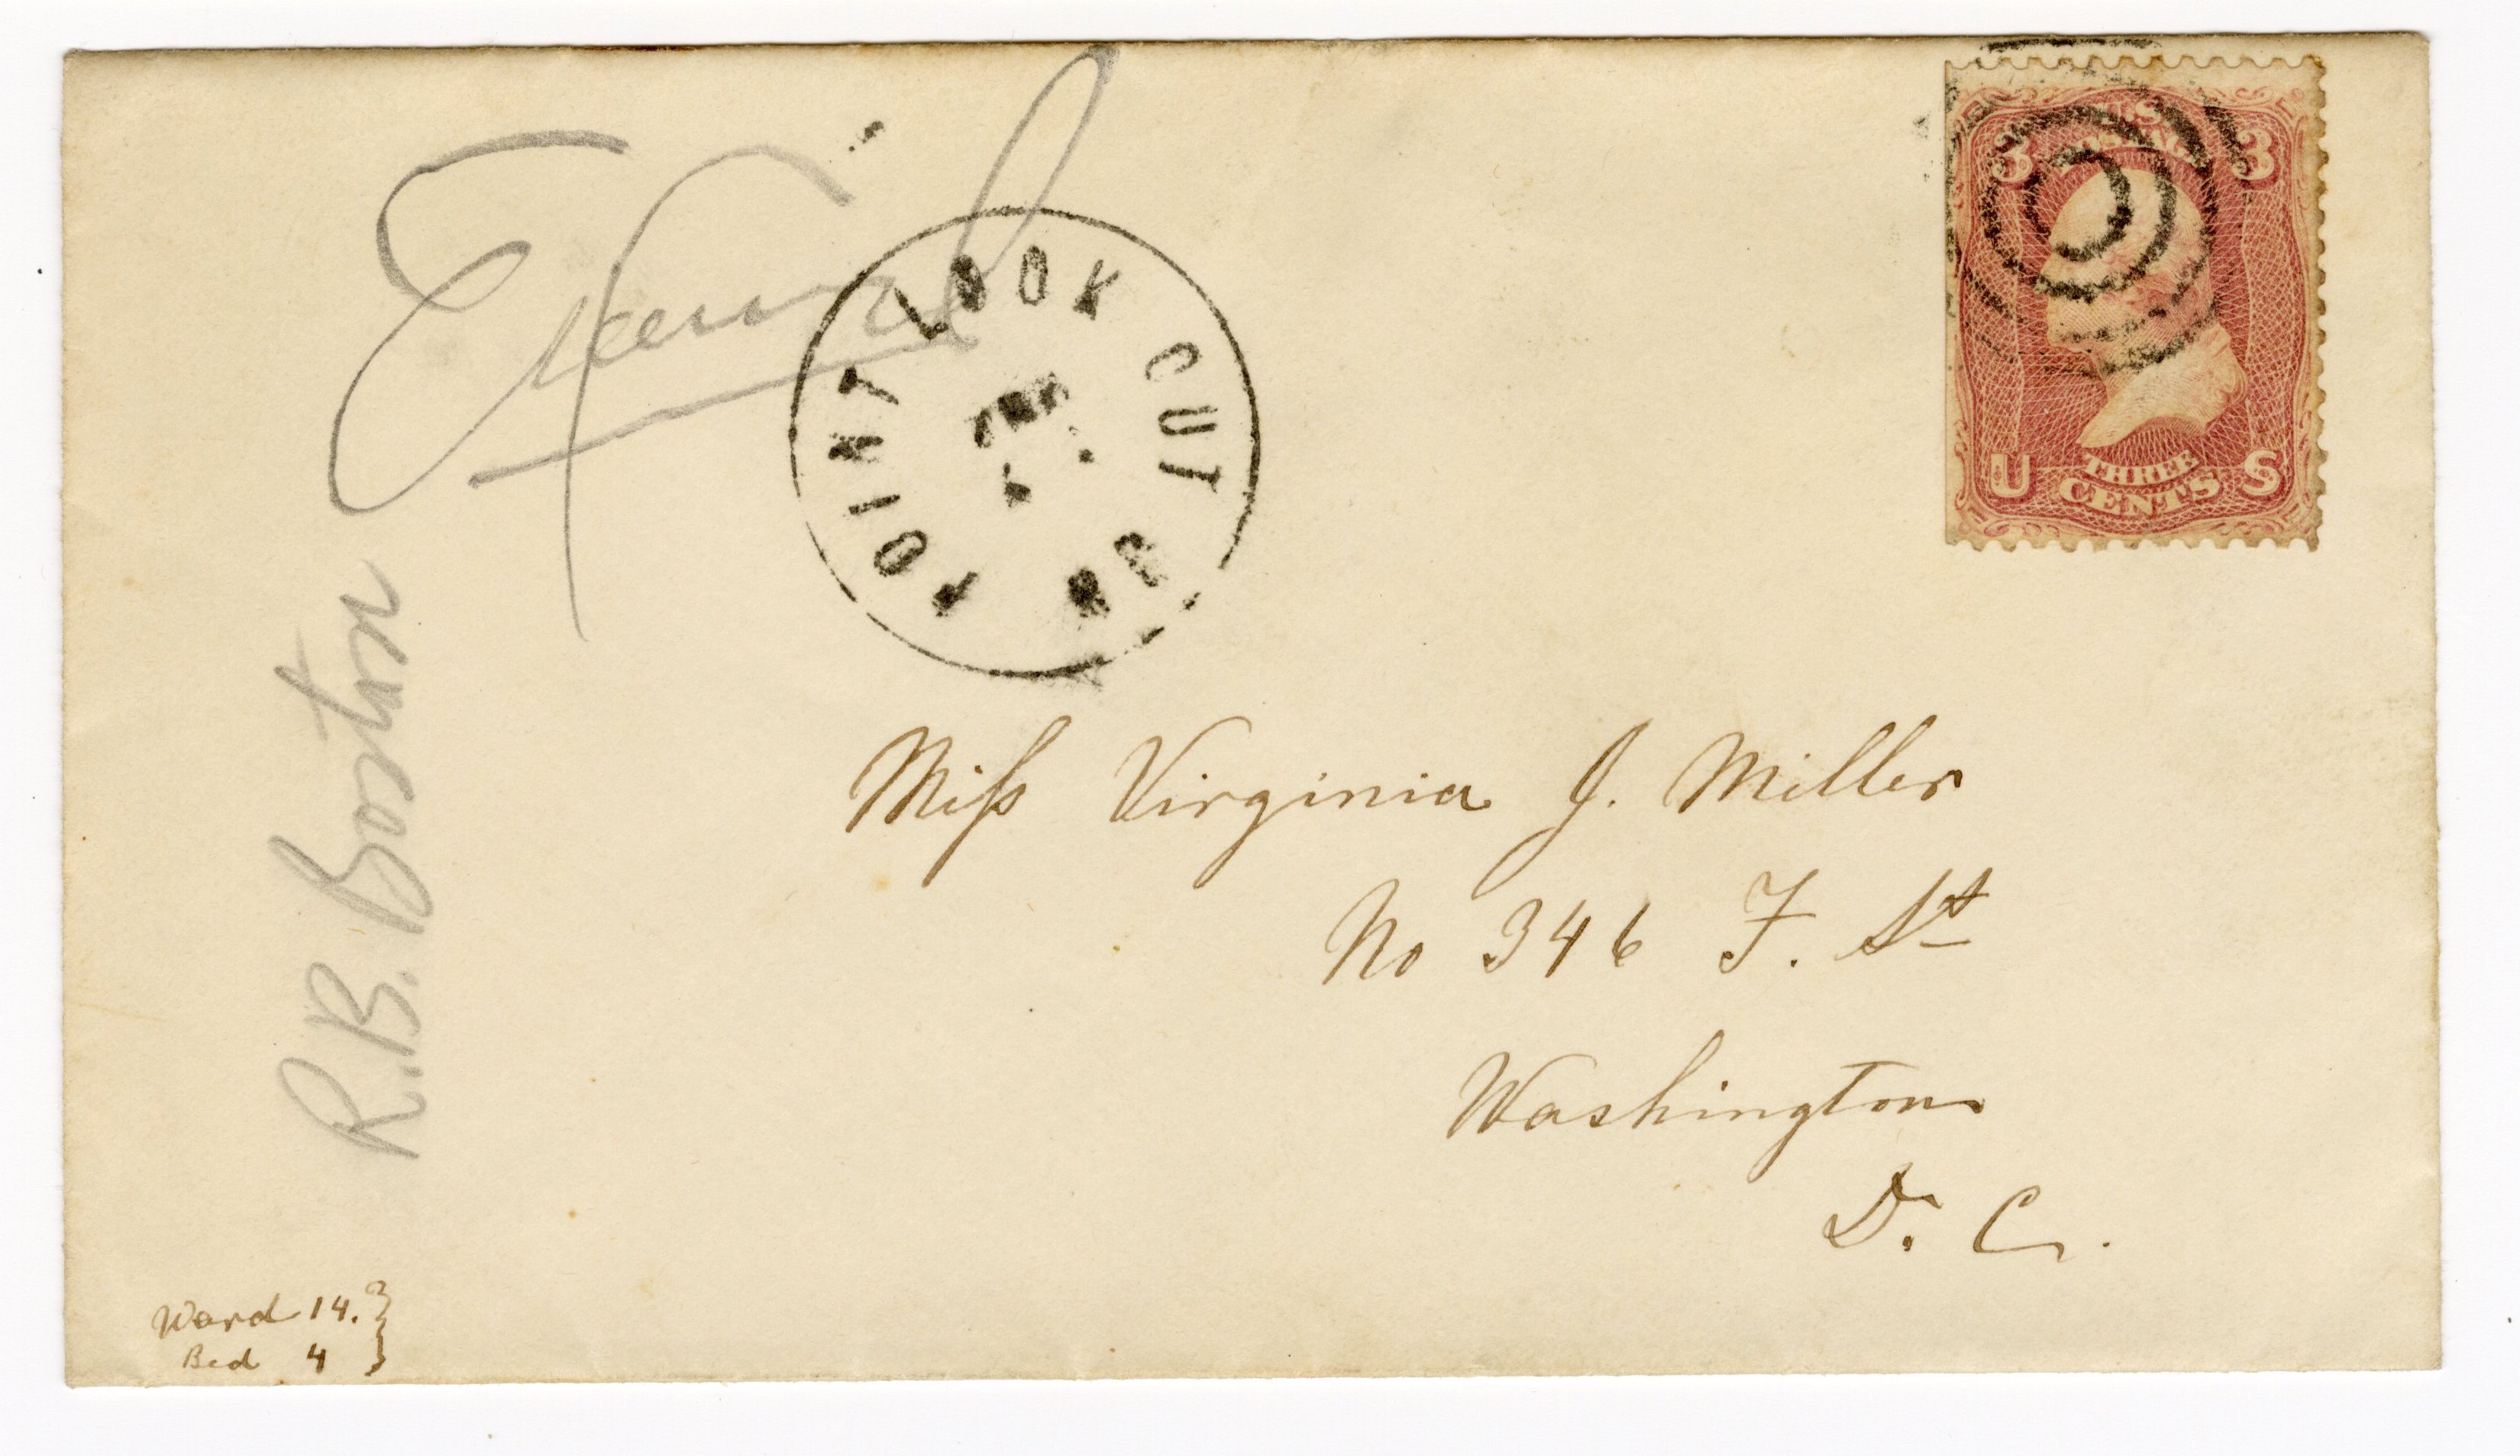 Exam'd
R.B. Boston
POINT LOOK OUT MD
U.S. POSTAGE
3 3
U THREE CENTS S
Miss Virginia J. Miller
No 346 F. St
Washington
D. C.
Ward 14.
Bed 4